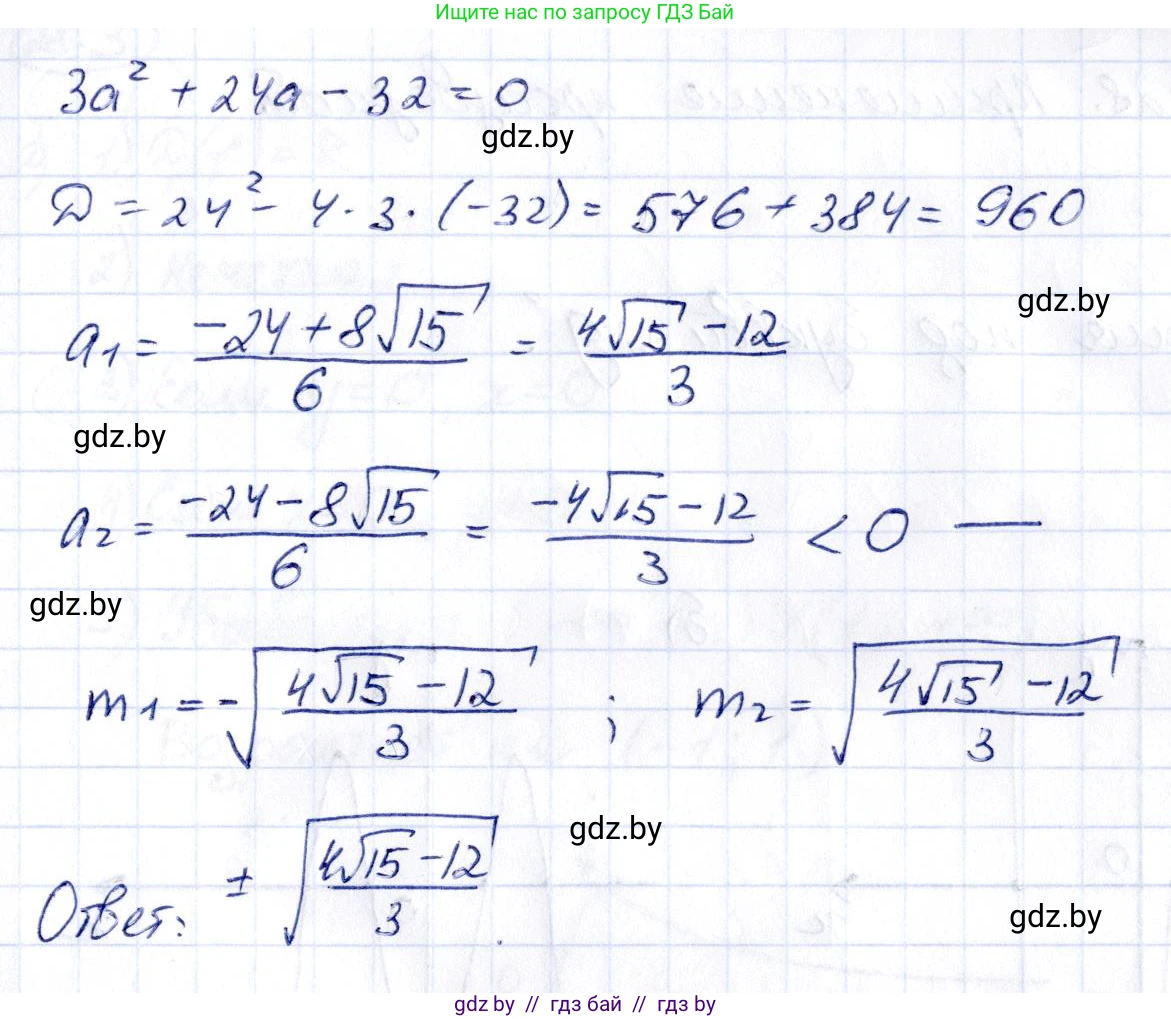 Ищите нас по запросу ГДЗ Бай
3a² + 24a - 32 = 0
gdz.by
D = 24² - 4 · 3 · (-32) = 576 + 384 = 960
gdz.by
a₁ = (-24 + 8√15)/6 = (4√15 - 12)/3
gdz.by
a₂ = (-24 - 8√15)/6 = (-4√15 - 12)/3 < 0 —
gdz.by
m₁ = -√((4√15 - 12)/3) ; m₂ = √((4√15 - 12)/3)
gdz.by
Ответ: ± √((4√15 - 12)/3).
gdz.by
gdz by // гдз бай // гдз by